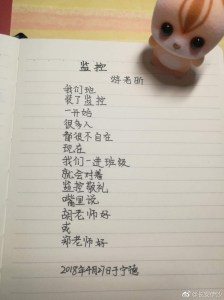 监控
我们班
装了监控
一开始
很多人
都很不自在
现在
我们一进班级
就会对着
监控敬礼
嘴里说
胡老师好
或
郑老师好
2018年4月27日于宁德